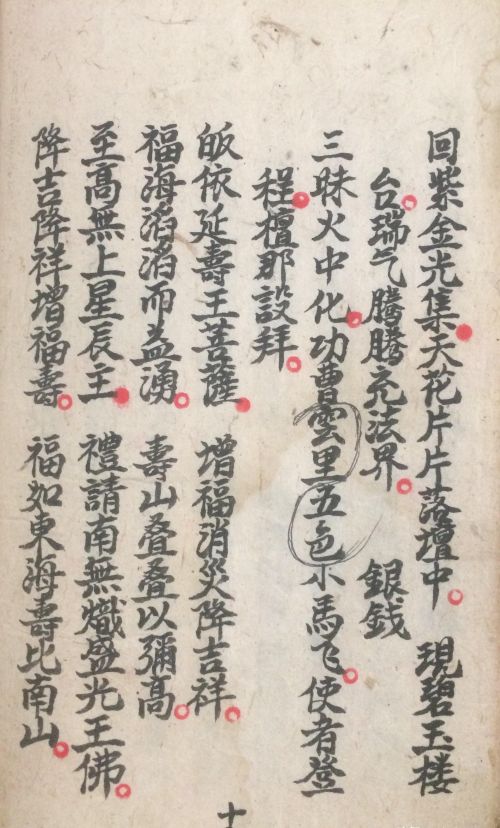 回紫金光集。天花片片落壇中。 現碧玉楼
台。瑞气騰騰充法界。 銀銭
三昧火中化。功曹雲里五色小馬飞。使者登
程。檀那設拜。
皈依延壽王菩薩。 增福消災降吉祥。
福海滔滔而益湧。 壽山叠叠以彌高。
至高無上星辰主。 禮請南無熾盛光王佛。
降吉降祥增福壽。 福如東海壽比南山。
十